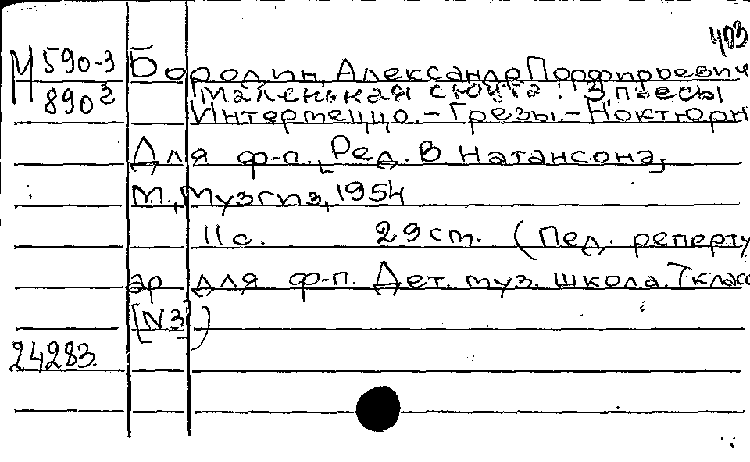 403
М 590-3 Бородин, Александр Порфирьевич
890² Маленькая сюита: 3 пьесы
Интермеццо.-Грезы.-Ноктюрн
Для ф-п. [Ред. В. Натансона]
М., Музгиз, 1954
11 с. 29 ст. (Пед. реперту
ар для ф-п. Дет. муз. школа. 7 класс
[N3])
24283.